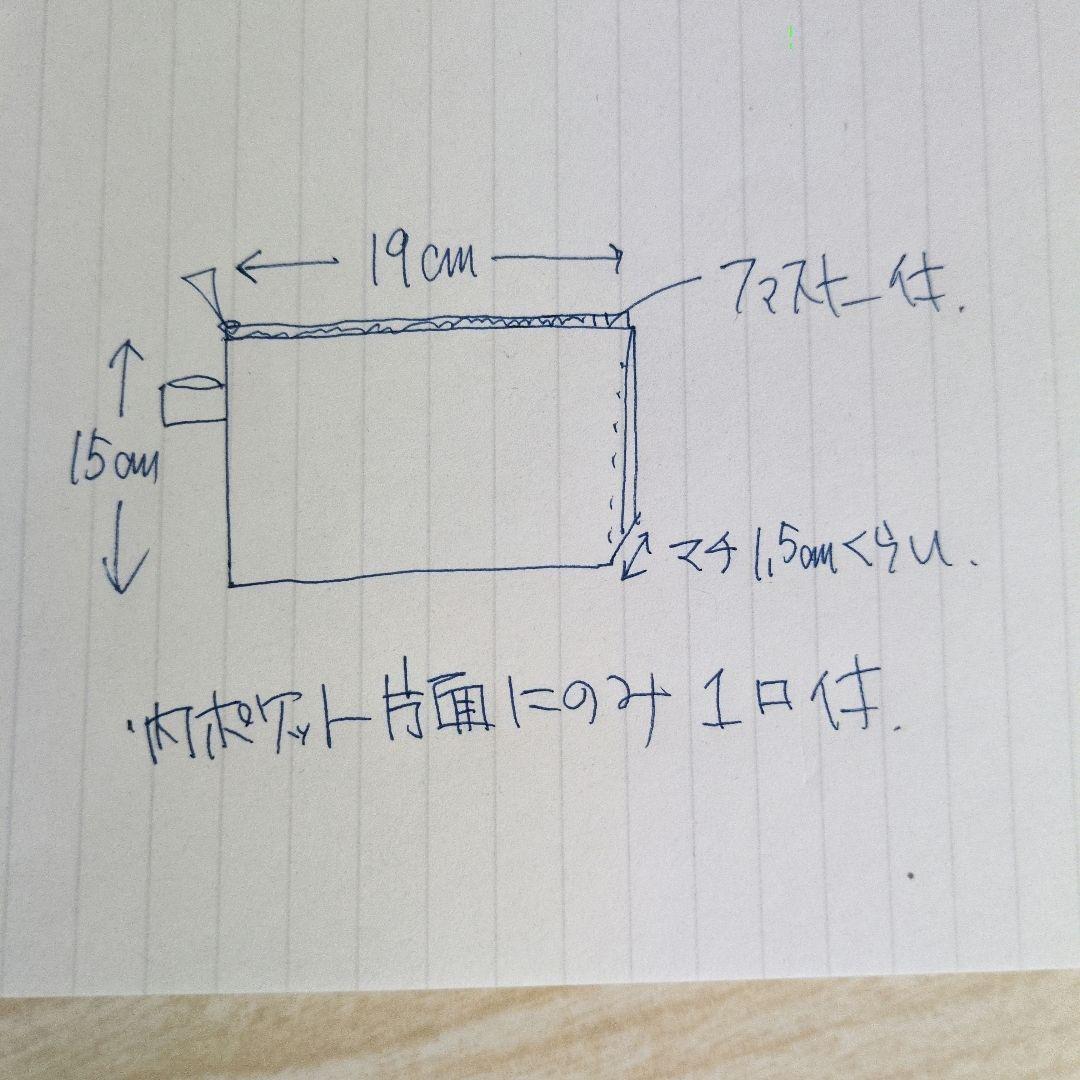 19cm
ファスナー付.
15cm
マチ1.5cmくらい.
・内ポケット片面にのみ1口付.